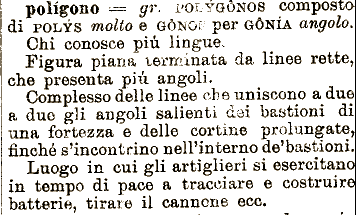 polígono = gr. POLYGÔNOS composto
di POLÝS molto e GÔNOS per GÔNÍA angolo.
Chi conosce più lingue.
Figura piana terminata da linee rette,
che presenta più angoli.
Complesso delle linee che uniscono a due
a due gli angoli salienti dei bastioni di
una fortezza e delle cortine prolungate,
finché s'incontrino nell'interno de'bastioni.
Luogo in cui gli artiglieri si esercitano
in tempo di pace a tracciare e costruire
batterie, tirare il cannone ecc.